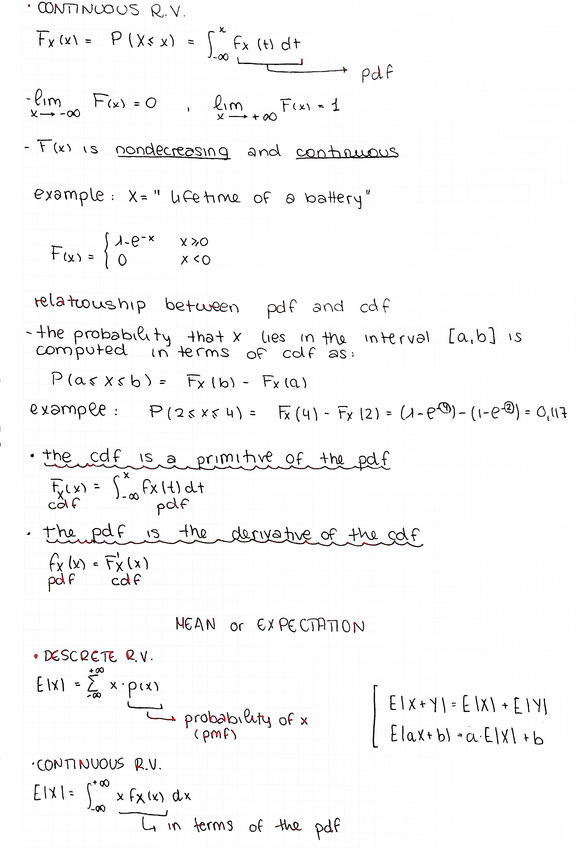 · CONTINUOUS R.V.
Fx(x) = P(X≤x) = ∫_{-∞}^{x} fx(t) dt
→ pdf
- lim_{x→-∞} F(x) = 0 , lim_{x→+∞} F(x) = 1
- F(x) is nondecreasing and continuous
example: X = "lifetime of a battery"
F(x) = { 1-e^{-x} x≥0
0 x<0
relationship between pdf and cdf
- the probability that x lies in the interval [a,b] is
computed in terms of cdf as:
P(a≤x≤b) = Fx(b) - Fx(a)
example: P(2≤x≤4) = Fx(4) - Fx(2) = (1-e^{-(4)}) - (1-e^{-(2)}) = 0,117
· the cdf is a primitive of the pdf
Fx(x) = ∫_{-∞}^{x} fx(t) dt
cdf pdf
· the pdf is the derivative of the cdf
fx(x) = F'x(x)
pdf cdf
MEAN or EXPECTATION
· DESCRETE R.V.
E|X| = Σ_{-∞}^{+∞} x · p(x)
→ probability of x
(pmf)
E|X+Y| = E|X| + E|Y|
E|ax+b| = a·E|X| + b
· CONTINUOUS R.V.
E|X| = ∫_{-∞}^{+∞} x fx(x) dx
↳ in terms of the pdf